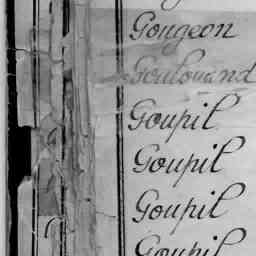 Gougeon
Goupil
Goupil
Goupil
Goupil